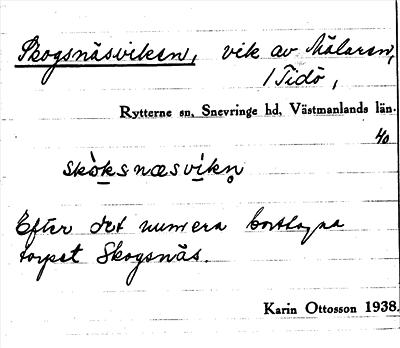 Skogsnäsviken, vik av Mälaren,
/ Tidö,
Rytterne sn, Snevringe hd, Västmanlands län.
40
skòksnæsvikn̥
Efter det numera borttagna
torpet Skogsnäs.
Karin Ottosson 1938.